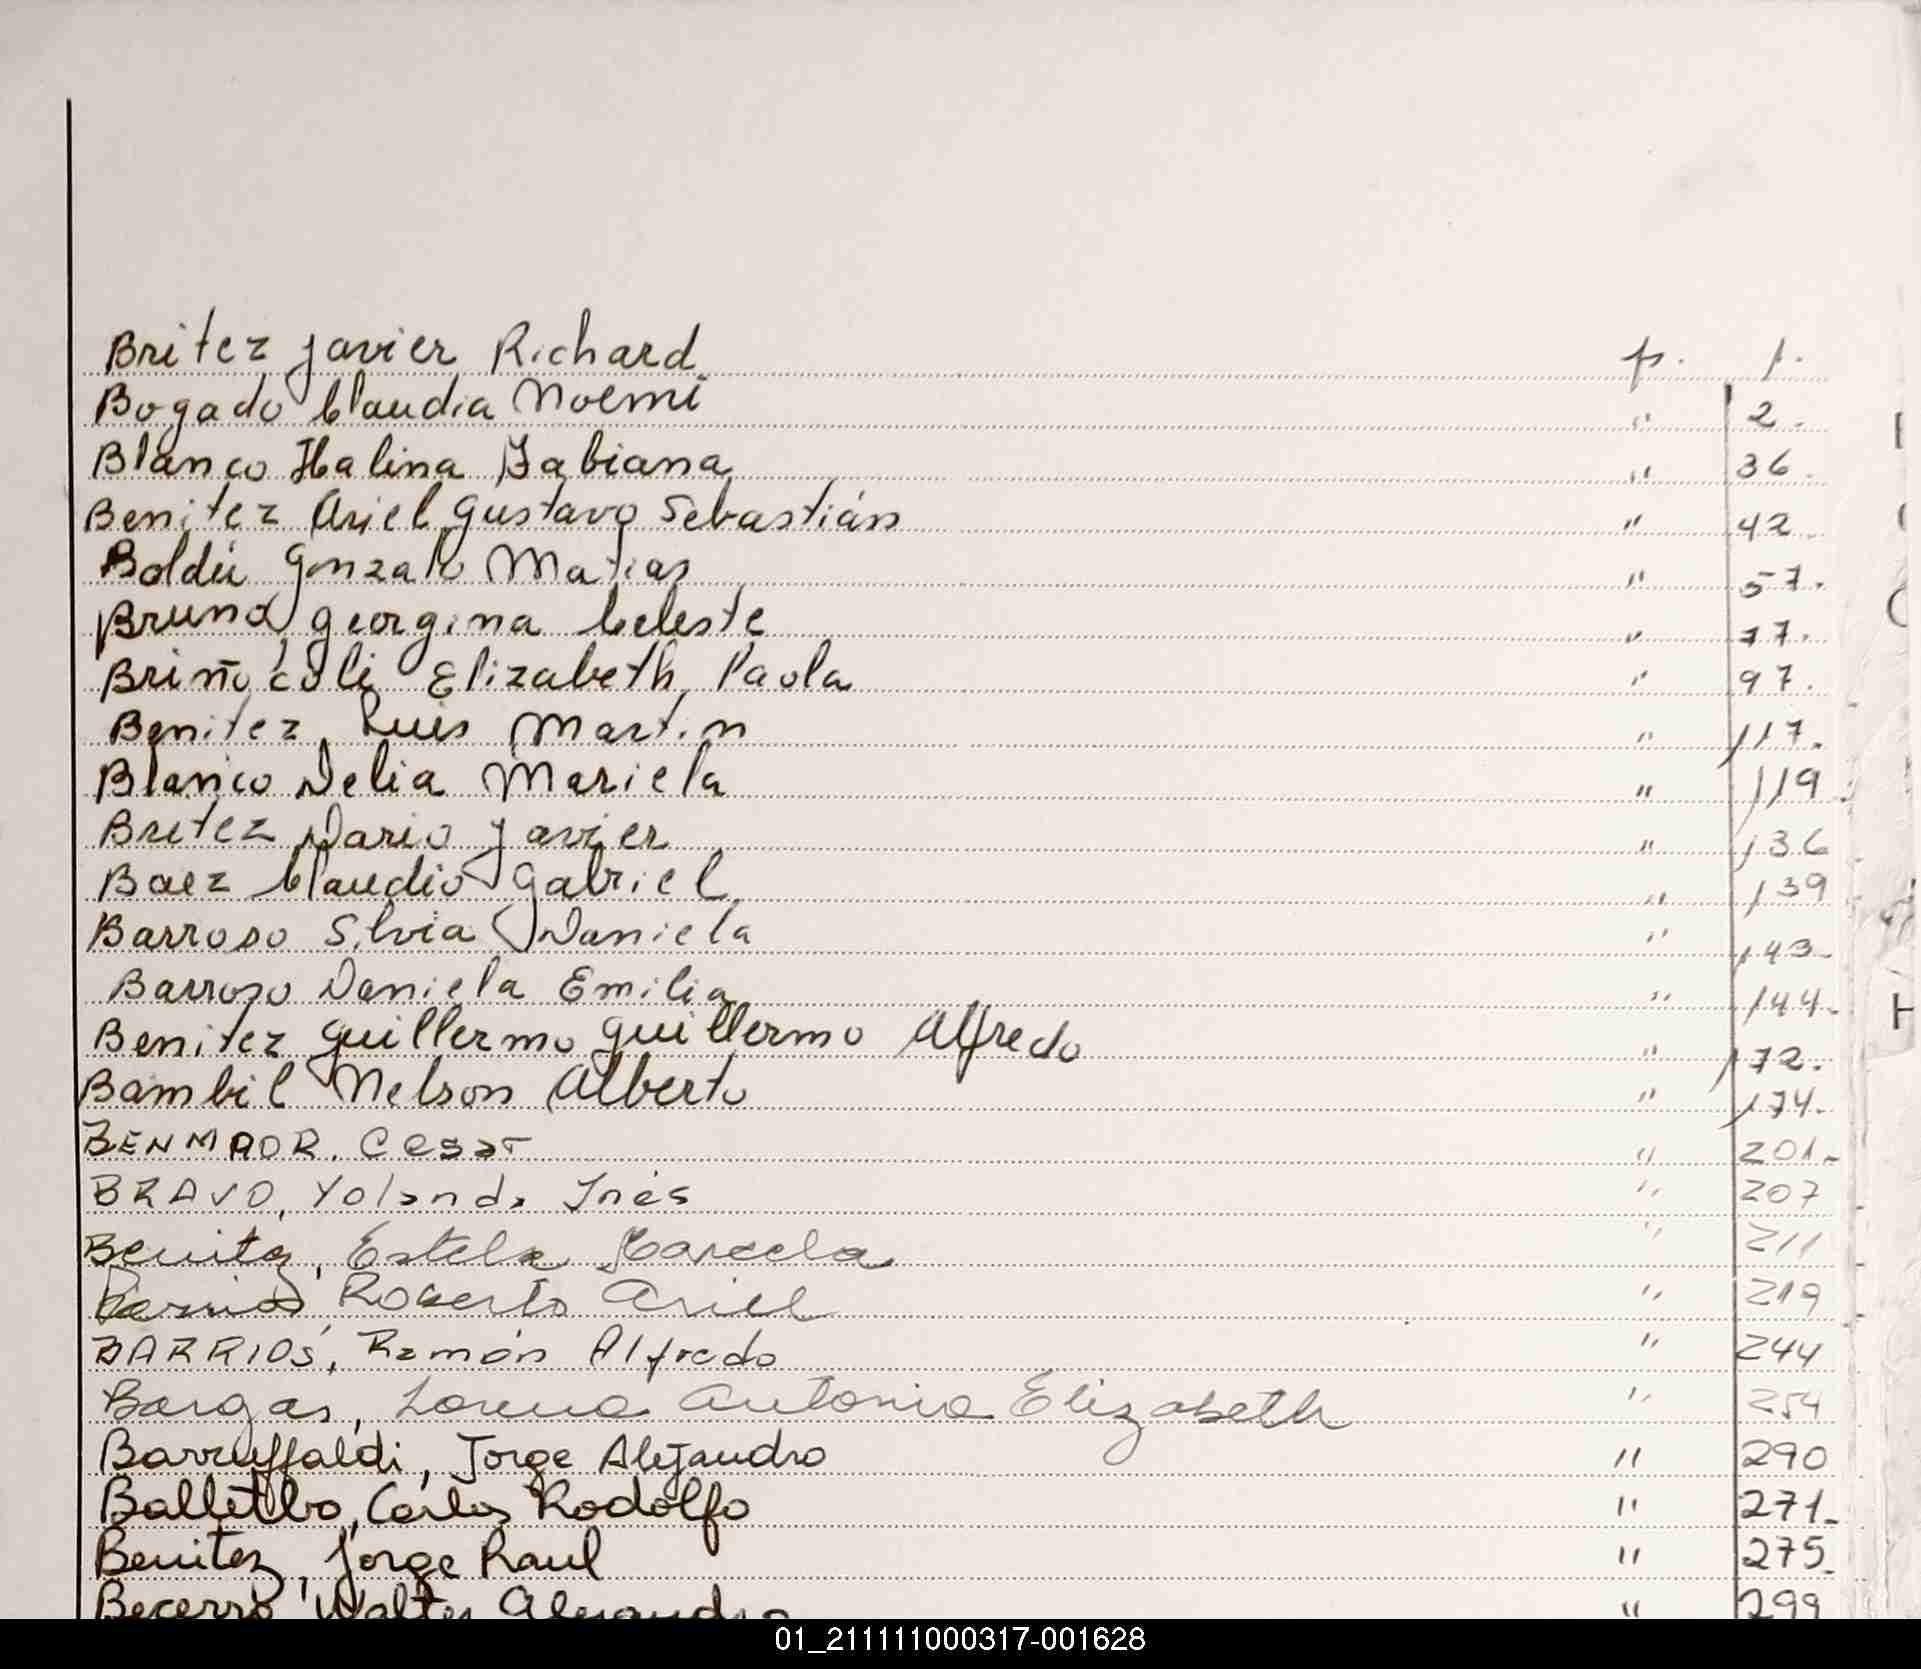 Britez Javier Richard p. 1.
Bogado Claudia Noemi " 2.
Blanco Halina Fabiana " 36.
Benitez Ariel Gustavo Sebastián " 42.
Boldú Gonzalo Matias " 57.
Bruno, Georgina Celeste " 77.
Elizabeth Paola " 97.
Benitez Luis Martin " 117.
Blanco Delia Mariela " 119.
Britez Dario Javier " 136
Baez Claudio Gabriel " 139
Barroso Silvia Daniela " 143.
Barroso Daniela Emilia " 144.
Benitez Guillermo Guillermo Alfredo " 172.
Bambil Nelson Alberto " 174.
BENMAOR. Cesar " 201.
BRAVO, Yolanda Inés " 207
Benitez, Estela Marcela " 211
Roberto Ariel " 219
BARRIOS, Ramón Alfredo " 244
Bargas, Lorena Antonia Elizabeth " 254
Barruffaldi, Jorge Alejandro " 290
Balletbo, Carlos Rodolfo " 271.
Benitez, Jorge Raul " 275.
Becerro, Walter Alejandro " 299
01_211111000317-001628